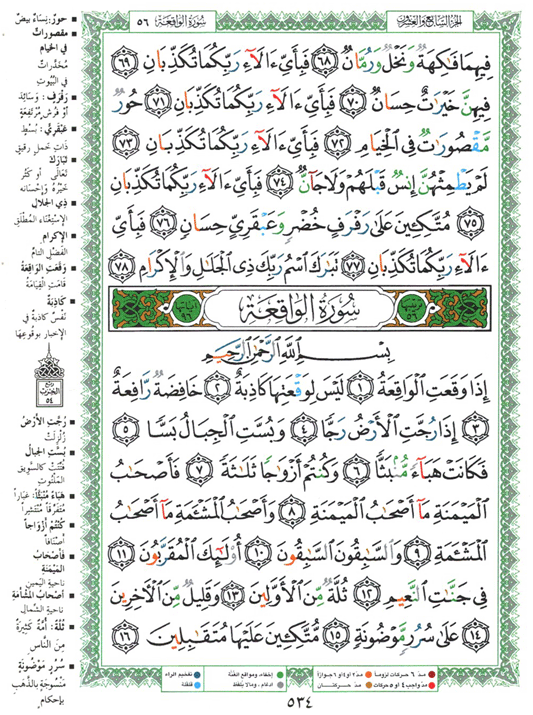 الجزء السابع والعشرون
سُورَةُ الوَاقِعَة ٥٦
فِيهِمَا فَاكِهَةٌ وَنَخْلٌ وَرُمَّانٌ ٦٨ فَبِأَيِّ ءَالَآءِ رَبِّكُمَا تُكَذِّبَانِ ٦٩
فِيهِنَّ خَيْرَاتٌ حِسَانٌ ٧٠ فَبِأَيِّ ءَالَآءِ رَبِّكُمَا تُكَذِّبَانِ ٧١ حُورٌ
مَّقْصُورَاتٌ فِي الْخِيَامِ ٧٢ فَبِأَيِّ ءَالَآءِ رَبِّكُمَا تُكَذِّبَانِ ٧٣
لَمْ يَطْمِثْهُنَّ إِنسٌ قَبْلَهُمْ وَلَا جَانٌّ ٧٤ فَبِأَيِّ ءَالَآءِ رَبِّكُمَا تُكَذِّبَانِ
٧٥ مُتَّكِئِينَ عَلَىٰ رَفْرَفٍ خُضْرٍ وَعَبْقَرِيٍّ حِسَانٍ ٧٦ فَبِأَيِّ
ءَالَآءِ رَبِّكُمَا تُكَذِّبَانِ ٧٧ تَبَارَكَ اسْمُ رَبِّكَ ذِي الْجَلَالِ وَالْإِكْرَامِ ٧٨
ترتيبها ٥٦ سُورَةُ الْوَاقِعَةِ آياتها ٩٦
بِسْمِ اللَّهِ الرَّحْمَٰنِ الرَّحِيمِ
إِذَا وَقَعَتِ الْوَاقِعَةُ ١ لَيْسَ لِوَقْعَتِهَا كَاذِبَةٌ ٢ خَافِضَةٌ رَّافِعَةٌ
٣ إِذَا رُجَّتِ الْأَرْضُ رَجًّا ٤ وَبُسَّتِ الْجِبَالُ بَسًّا ٥
فَكَانَتْ هَبَاءً مُّنبَثًّا ٦ وَكُنتُمْ أَزْوَاجًا ثَلَاثَةً ٧ فَأَصْحَابُ
الْمَيْمَنَةِ مَا أَصْحَابُ الْمَيْمَنَةِ ٨ وَأَصْحَابُ الْمَشْئَمَةِ مَا أَصْحَابُ
الْمَشْئَمَةِ ٩ وَالسَّابِقُونَ السَّابِقُونَ ١٠ أُولَٰئِكَ الْمُقَرَّبُونَ ١١
فِي جَنَّاتِ النَّعِيمِ ١٢ ثُلَّةٌ مِّنَ الْأَوَّلِينَ ١٣ وَقَلِيلٌ مِّنَ الْآخِرِينَ
١٤ عَلَىٰ سُرُرٍ مَّوْضُونَةٍ ١٥ مُّتَّكِئِينَ عَلَيْهَا مُتَقَابِلِينَ ١٦
حُورٌ: نِسَاءٌ بِيضٌ
مقصوراتٌ
في الخيام
مُخَدَّراتٌ
في البُيُوتِ
رَفْرَفٍ: وَسَائِدَ
أَوْ فُرُشٍ مُرْتَفِعَةٍ
عَبْقَرِيٍّ: بُسُطٍ
ذَاتِ خَمْلٍ رَقِيقٍ
تَبَارَكَ
تَعَالَى أَوْ كَثُرَ
خَيْرُهُ وَإِحْسَانُه
ذِي الجلال
الاِسْتِغْنَاءِ المُطْلَقِ
الإكرام
الفَضْلِ التَّامِّ
وَقَعَتِ الوَاقِعَةُ
قَامَتِ القِيَامَةُ
كَاذِبَةٌ
نَفْسٌ كَاذِبَةٌ في
الإخبار بوقُوعِهَا
ربع
الحزب
٥٤
رُجَّتِ الأَرْضُ
زُلْزِلَتْ
بُسَّتِ الجِبالُ
فُتِّتَتْ كالسَّوِيق
المَلْتُوتِ
هَبَاءً مُنْبَثًّا: غُبَاراً
مُتَفَرِّقاً مُنْتَشِراً
كُنْتُمْ أَزْوَاجاً
أَصْنَافاً
فَأَصْحَابُ
المَيْمَنَةِ
ناحِيَةِ اليَمِين
أَصْحَابُ المَشْأَمَةِ
ناحِيَةِ الشِّمَال
ثُلَّةٌ: أُمَّةٌ كَثِيرَةٌ
مِنَ النَّاسِ
سُرُرٍ مَوْضُونَةٍ
مَنْسُوجَةٍ بِالذَّهَبِ
بإحكام
مدّ ٦ حركات لزوماً مدّ ٢ أو ٤ أو ٦ جوازاً إخفاء، ومواقع الغنّة تفخيم الراء
مدّ واجب ٤ أو ٥ حركات مدّ حركتان إدغام، وما لا يُلفظ قلقلة
٥٣٤